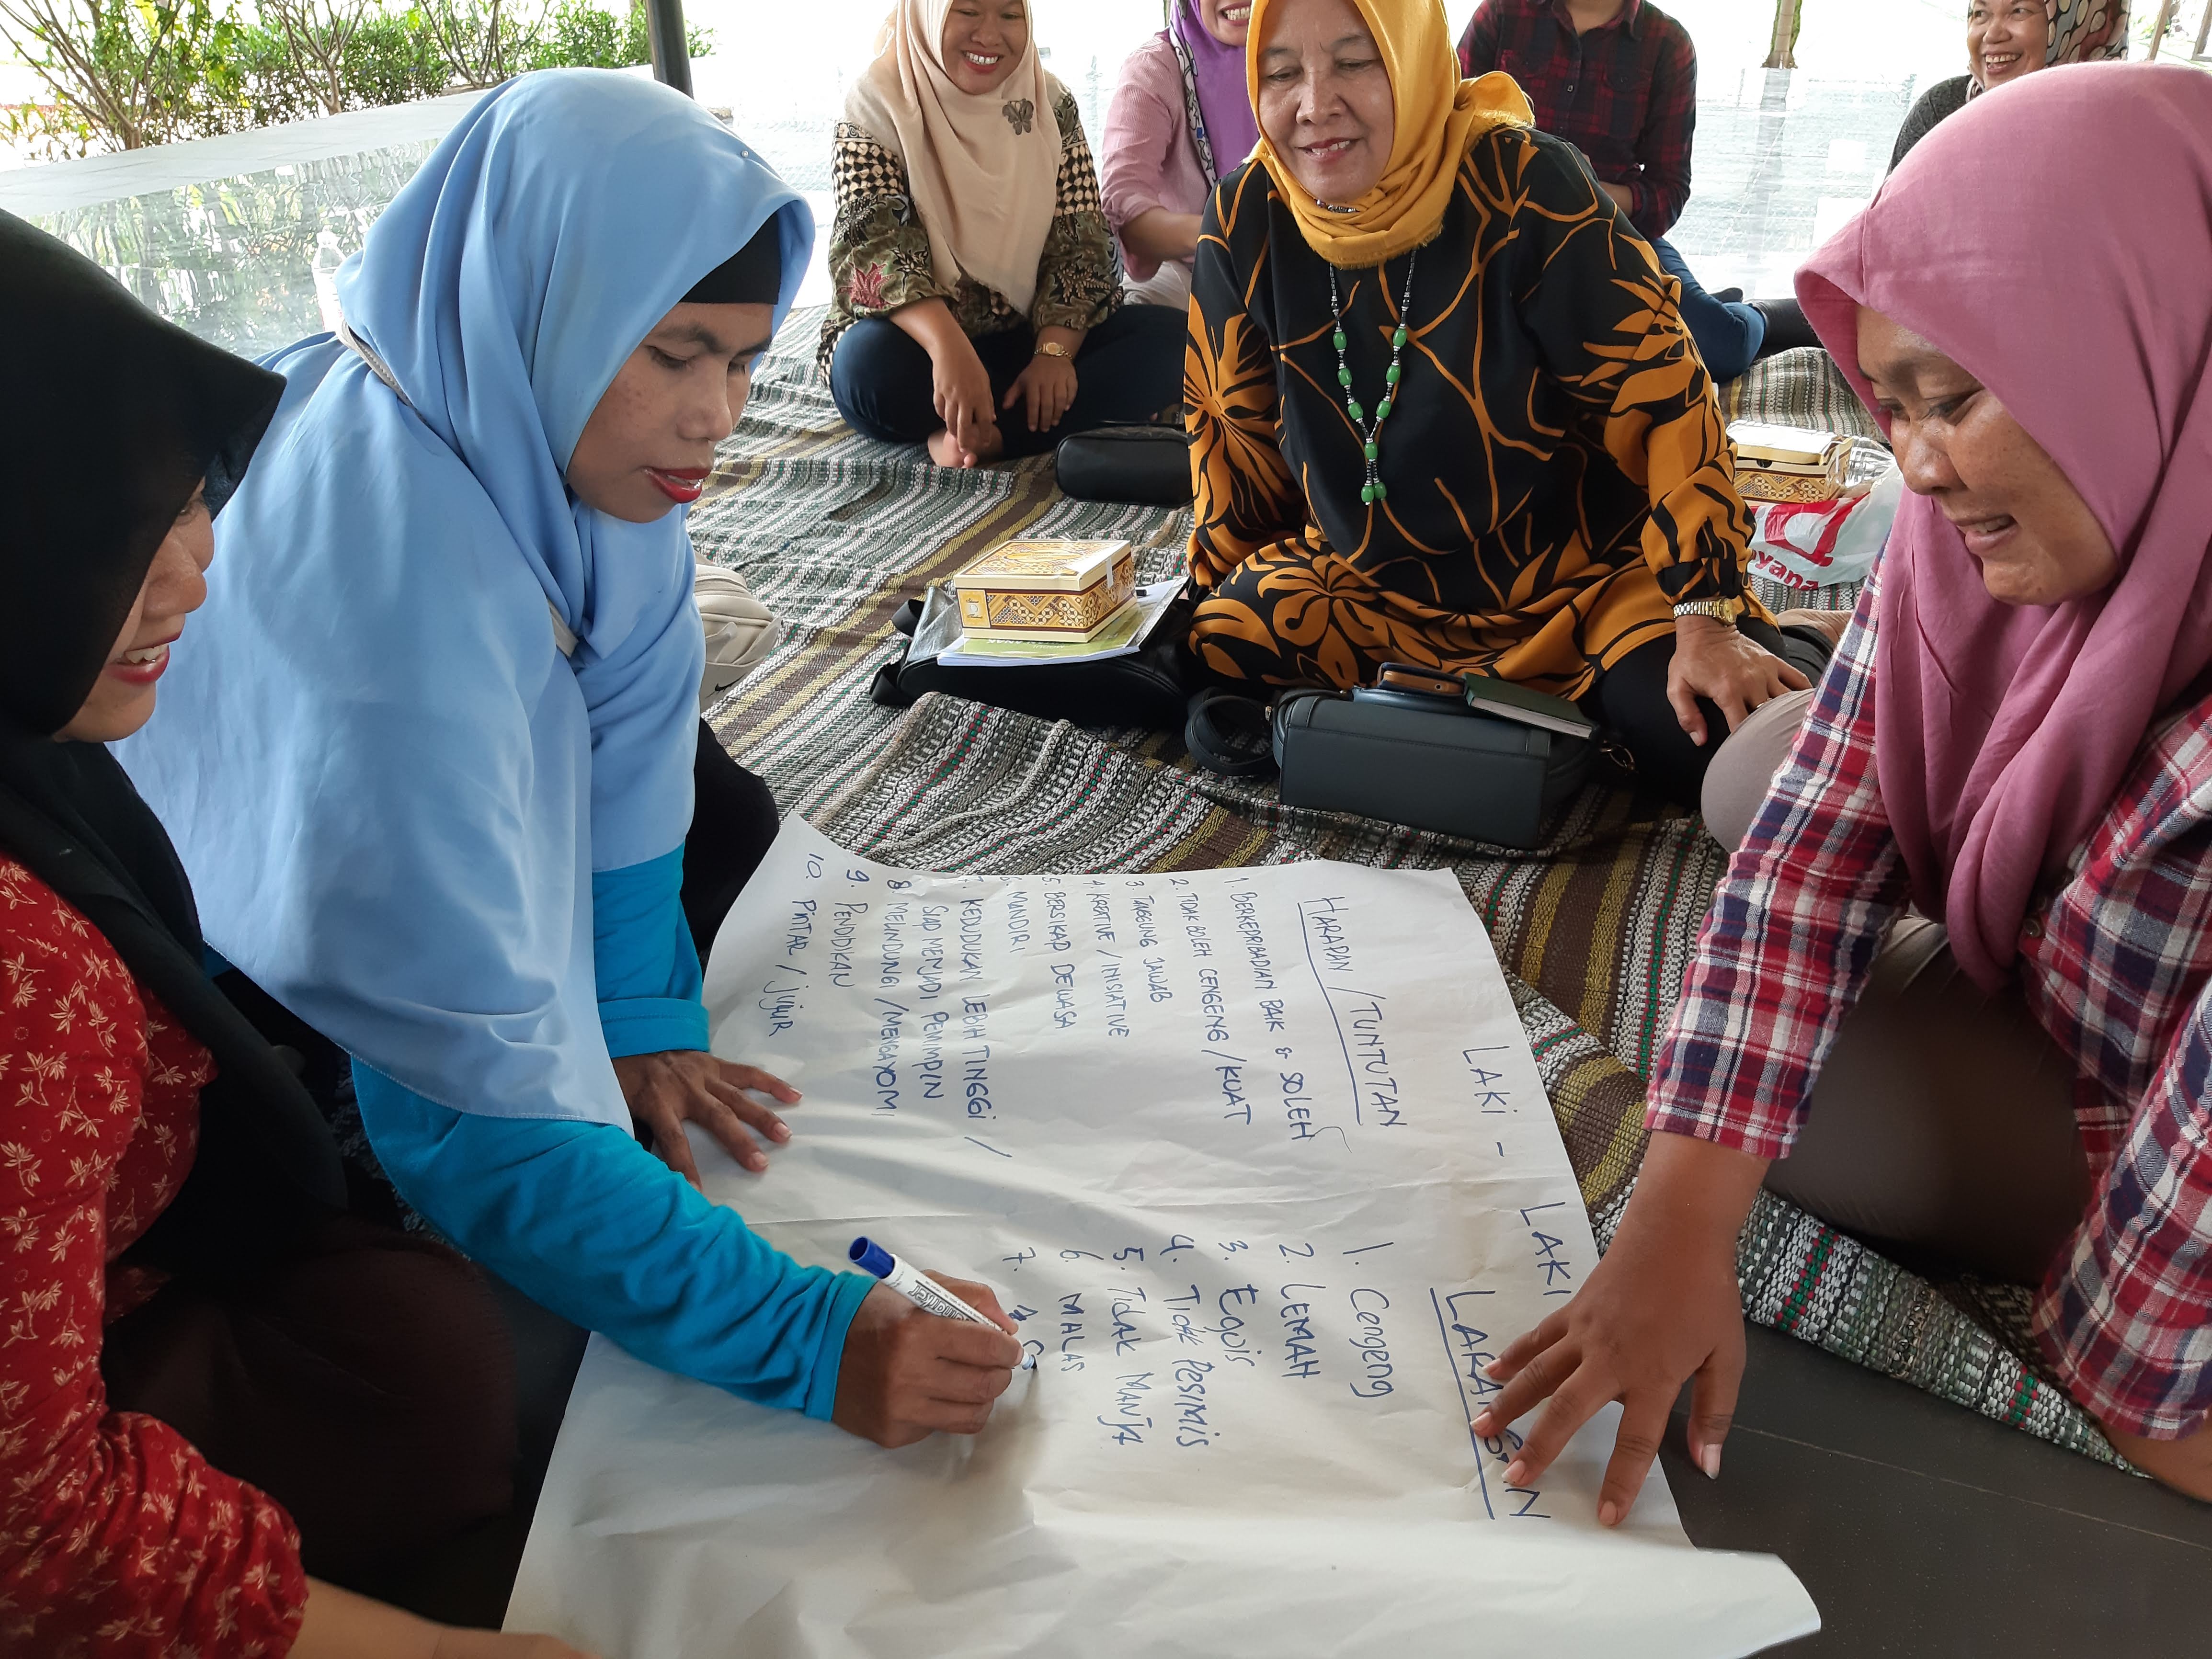 LAKI - LAKI
HARAPAN / TUNTUTAN
1. BERKEPRIBADIAN BAIK & SOLEH
2. TIDAK BOLEH CENGENG / KUAT
3 TANGGUNG JAWAB
4. KREATIVE / INISIATIVE
5. BERSIKAP DEWASA
6. MANDIRI
7. KEDUDUKAN LEBIH TINGGI /
SIAP MENJADI PEMIMPIN
8. MELINDUNGI / MENGAYOMI
9. PENDIDIKAN
10. PINTAR / JUJUR
1. Cengeng
2. LEMAH
3. EGOIS
4. TIDAK PESIMIS
5. TIDAK MANJA
6. MALAS
7.
marker